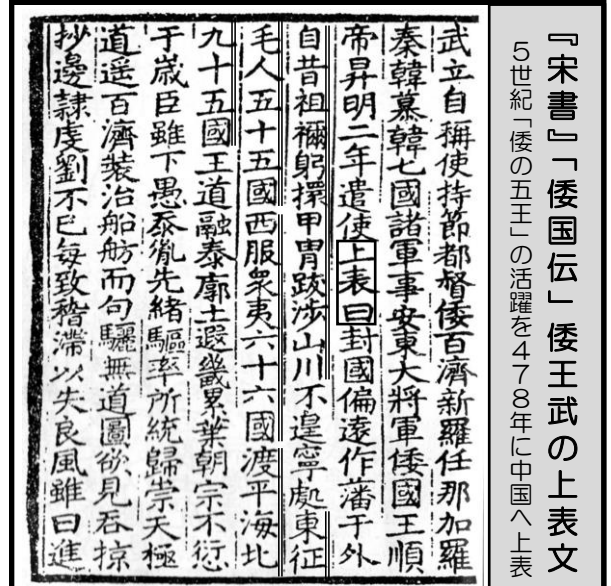 『宋書』「倭国伝」倭王武の上表文
５世紀「倭の五王」の活躍を４７８年に中国へ上表
武立自稱使持節都督倭百濟新羅任那加羅
秦韓慕韓七國諸軍事安東大將軍倭國王順
帝昇明二年遣使上表曰封國偏遠作藩于外
自昔祖禰躬擐甲胄跋涉山川不遑寧處東征
毛人五十五國西服衆夷六十六國渡平海北
九十五國王道融泰廓土遐畿累葉朝宗不愆
于歲臣雖下愚忝胤先緒驅率所統歸崇天極
道遥百濟裝治船舫而句驪無道圖欲見吞掠
抄邊隸虔劉不已每致稽滯以失良風雖曰進